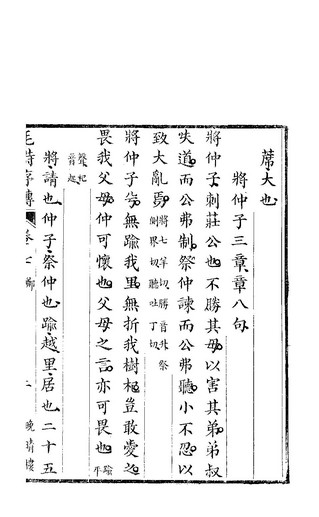 蓆大也
將仲子三章章八句
將仲子刺莊公也不勝其母以害其弟弟叔
失道而公弗制祭仲諫而公弗聽小不忍以
致大亂焉將七羊切勝音升祭
側界切聽吐丁切
將仲子兮無踰我里無折我樹杞豈敢愛之
畏我父母仲可懷也父母之言亦可畏也踰
平
聲杞
音起
將請也仲子祭仲也踰越里居也二十五
毛詩序傳 卷七 鄭 二 晚晴樓